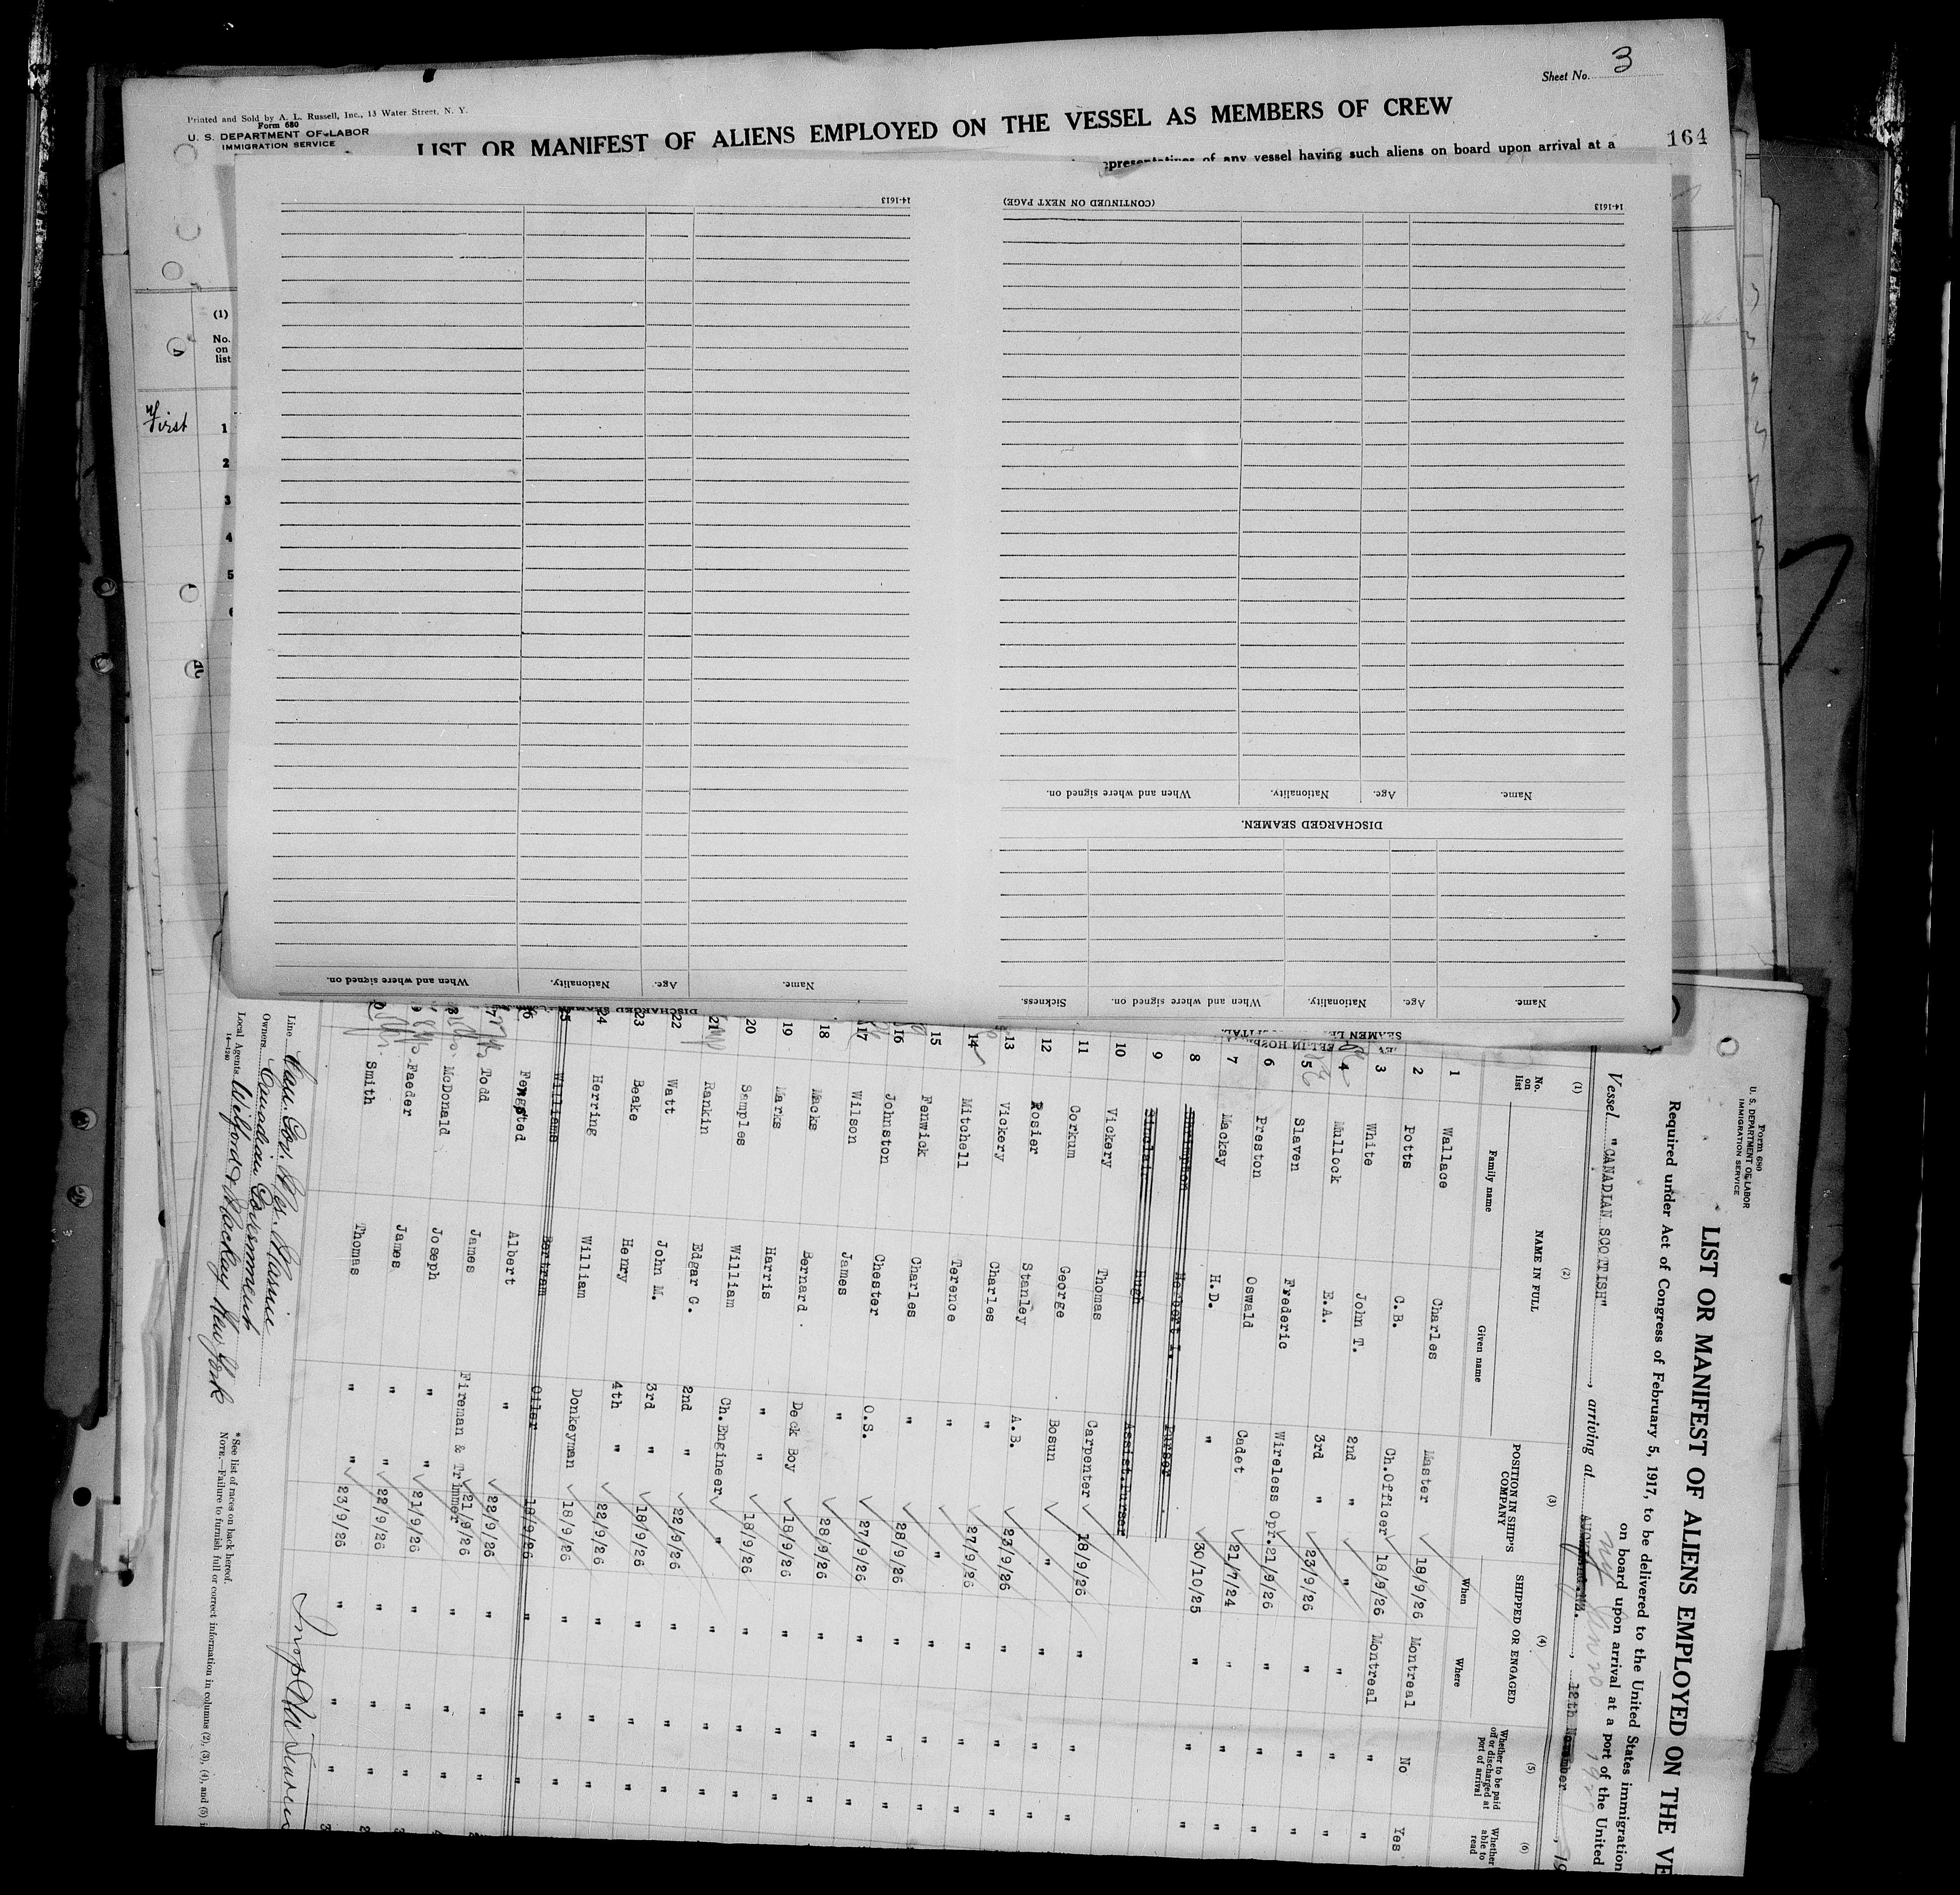 Sheet No. 3
Printed and Sold by A. L. Russell, Inc., 13 Water Street, N. Y.
Form 680
U. S. DEPARTMENT OF LABOR
IMMIGRATION SERVICE
LIST OR MANIFEST OF ALIENS EMPLOYED ON THE VESSEL AS MEMBERS OF CREW
164
of any vessel having such aliens on board upon arrival at a
(1)
No. on list
First
1
2
3
4
5
14-1613
(CONTINUED ON NEXT PAGE)
14-1613
When and where signed on. Nationality. Age. Name.
DISCHARGED SEAMEN.
When and where signed on. Nationality. Age. Name.
Sickness. When and where signed on. Nationality. Age. Name.
Form 680
U. S. DEPARTMENT OF LABOR
IMMIGRATION SERVICE
LIST OR MANIFEST OF ALIENS EMPLOYED ON THE VE
Required under Act of Congress of February 5, 1917, to be delivered to the United States immigration
on board upon arrival at a port of the United
Vessel "CANADIAN SCOTTISH", arriving at 12th November, 19
(1) (2) (3) (4) (5) (6)
No. on list NAME IN FULL POSITION IN SHIP'S COMPANY SHIPPED OR ENGAGED Whether to be paid off or discharged at port of arrival Whether able to read
Family name Given name When Where
1 Wallace Charles Master 18/9/26 Montreal No Yes
2 Potts C.B. Ch.Officer 18/9/26 Montreal " "
3 White John T. 2nd " " " " "
4 Mullock E.A. 3rd " 23/9/26 " " "
5 Slaven Frederic Wireless Opr. 21/9/26 " " "
6 Preston Oswald Cadet 21/7/24 " " "
7 Mackay H.D. " 30/10/25 " " "
8 Herbert I. Purser
9 Sinclair Hugh Assist.Purser
10 Vickery Thomas Carpenter 18/9/26 " " "
11 Corkum George Bosun " " " "
12 Rosier Stanley A.B. 23/9/26 " " "
13 Vickery Charles " 27/9/26 " " "
14 Mitchell Terence " " " " "
15 Fenwick Charles " 28/9/26 " " "
16 Johnston Chester O.S. 27/9/26 " " "
17 Wilson James " 28/9/26 " " "
18 Macks Bernard. Deck Boy 18/9/26 " " "
19 Marks Harris " " 18/9/26 " " "
20 Samples William " " " "
21 Rankin Edgar G. Ch.Engineer 22/9/26 " " "
22 Watt John M. 2nd " 18/9/26 " " "
23 Beake Henry 3rd " 22/9/26 " " "
24 Herring William 4th " 18/9/26 " " "
25 Williams Bertram Donkeyman
Oiler 18/9/26 " " "
26 Albert " 22/9/26 " " "
27 Todd James Fireman & Trimmer 21/9/26 " " "
28 McDonald Joseph " " 21/9/26 " " "
Faeder James " " 22/9/26 " " "
Smith Thomas " " 23/9/26 " " "
Line
Owners Canadian Government
Local Agents Wilford & Mackay New York
14—1240
*See list of races on back hereof.
NOTE.—Failure to furnish full or correct information in columns (2), (3), (4), and (5)